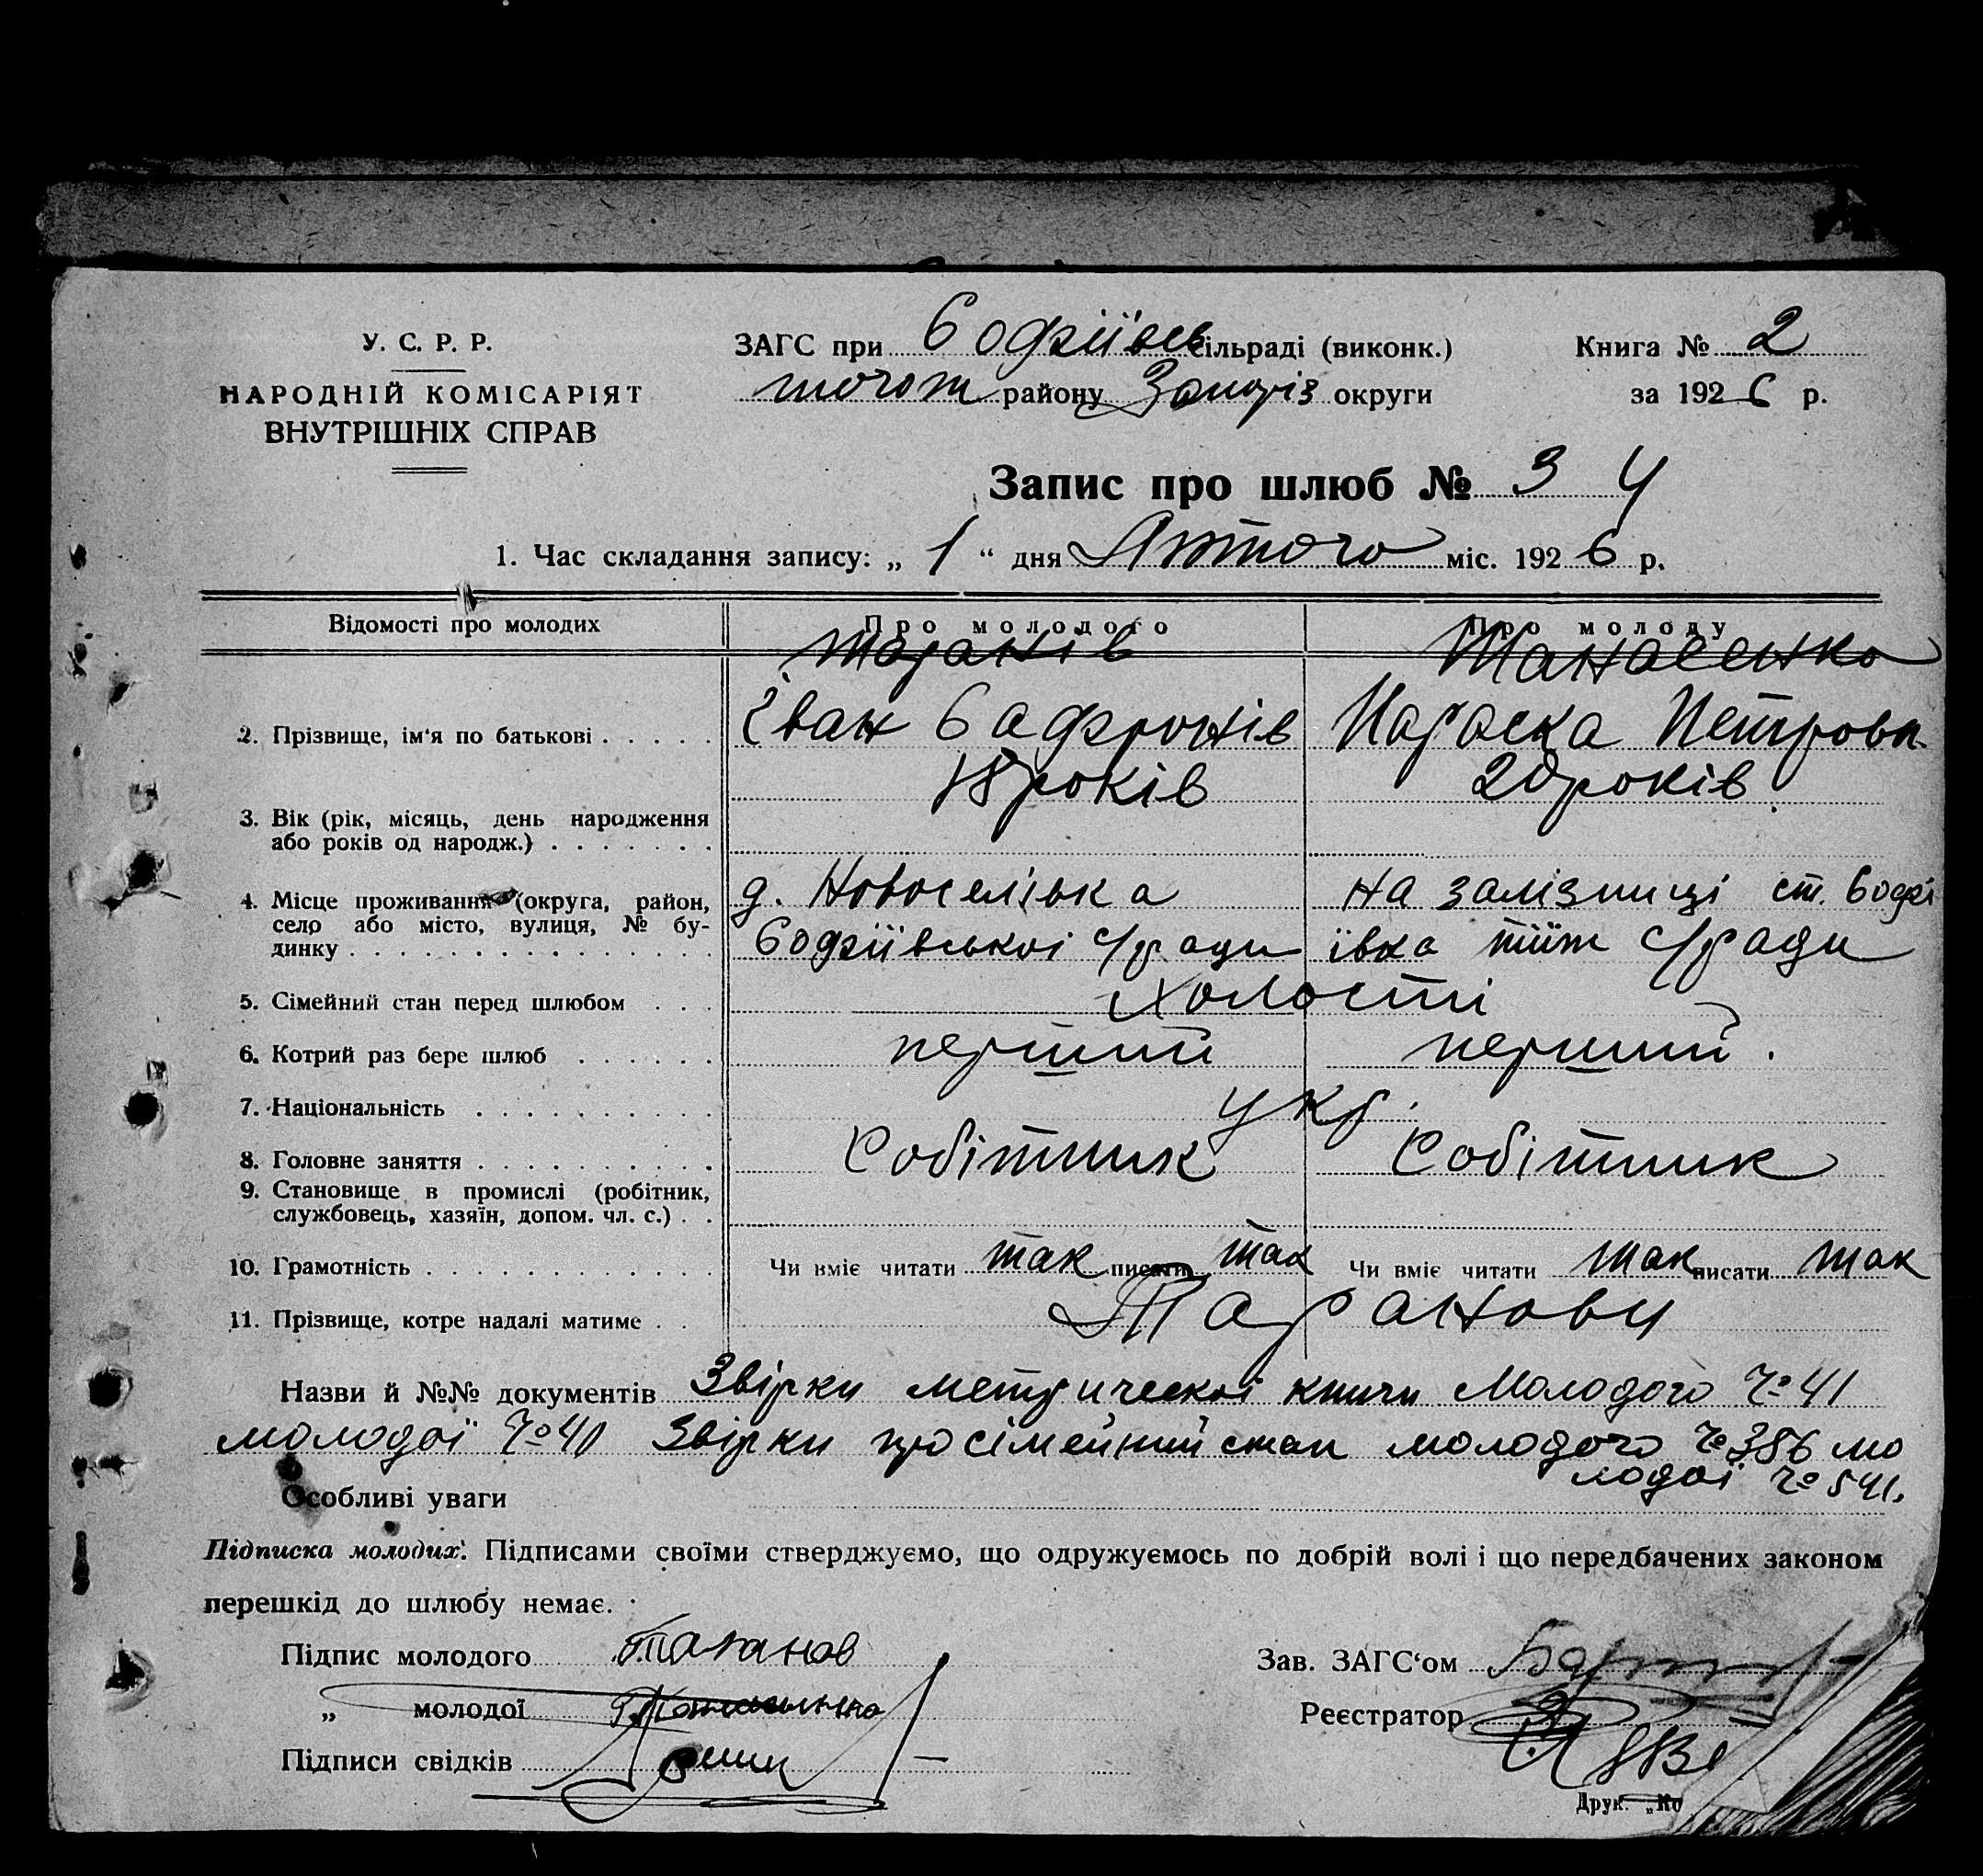 У. С. Р. Р.
НАРОДНІЙ КОМІСАРІЯТ
ВНУТРІШНІХ СПРАВ
ЗАГС при Софіївсь сільраді (виконк.)
того ж району Запоріз округи
Книга № 2
за 1926 р.
Запис про шлюб № 34
1. Час складання запису: „ 1 “ дня Лютого міс. 1926 р.
Відомості про молодих Про молодого Про молоду
Таранів Танасенко
2. Прізвище, ім‘я по батькові Іван Сафронів Параска Петровн.
18 років 20 років
3. Вік (рік, місяць, день народження
або років од народж.)
4. Місце проживання (округа, район, д. Новоселівка на залізниці ст. Софі
село або місто, вулиця, № бу-
динку Софіївськоі с/ради ївка тіїж с/ради
5. Сімейний стан перед шлюбом холості
6. Котрий раз бере шлюб перший перший.
7. Національність укр.
8. Головне заняття Робітник Робітник
9. Становище в промислі (робітник,
службовець, хазяїн, допом. чл. с.)
10. Грамотність Чи вміє читати так писати так Чи вміє читати так писати так
11. Прізвище, котре надалі матиме Таранови
Назви й №№ документів Звірки метрическоі книги Молодого № 41
молодоі № 40 Звірки про сімейний стан молодого № 386 мо
лодоі № 541.
Особливі уваги
Підписка молодих: Підписами своїми стверджуємо, що одружуємось по добрій волі і що передбачених законом
перешкід до шлюбу немає.
Підпис молодого Таранов
„ молодої
Підписи свідків
Зав. ЗАГС‘ом
Реєстратор
Друк. „Ко